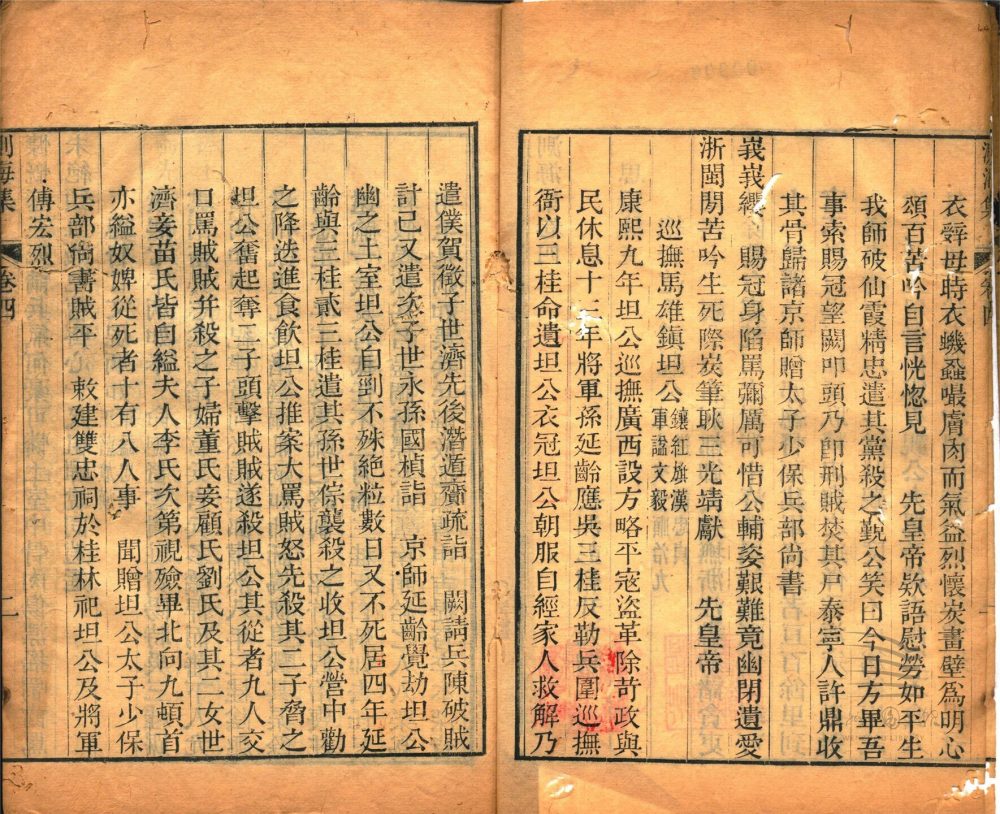 衣辭母時衣蟣蝨嘬膚肉而氣益烈懷炭畫壁爲明心
頌百苦吟自言恍惚見　先皇帝欵語慰勞如平生
我師破仙霞精忠遣其黨殺之覲公笑曰今日方畢吾
事索賜冠望闕叩頭乃卽刑賊焚其尸泰寧人許鼎收
其骨歸諸京師贈太子少保兵部尚書
峩峩纓　賜冠身陷罵彌厲可惜公輔姿艱難竟幽閉遺愛
浙閩閒苦吟生死際炭筆耿三光靖獻　先皇帝
巡撫馬雄鎮坦公鑲紅旗漢軍謚文毅
康熙九年坦公巡撫廣西設方略平寇盜革除苛政與
民休息十二年將軍孫延齡應吳三桂反勒兵圍巡撫
衙以三桂命遺坦公衣冠坦公朝服自經家人救解乃
遣僕賀徵子世濟先後潛遁齎疏詣　闕請兵陳破賊
計已又遣次子世永孫國楨詣　京師延齡覺劫坦公
幽之土室坦公自剄不殊絶粒數日又不死居四年延
齡與三桂貳三桂遣其孫世倧襲殺之收坦公營中勸
之降迭進食飲坦公推案大罵賊怒先殺其二子脅之
坦公奮起奪二子頭擊賊賊遂殺坦公其從者九人交
口罵賊賊幷殺之子婦董氏妾顧氏劉氏及其二女世
濟妾苗氏皆自縊夫人李氏次第視殮畢北向九頓首
亦縊奴婢從死者十有八人事　聞贈坦公太子少保
兵部尚書賊平　敕建雙忠祠於桂林祀坦公及將軍
傅宏烈
測海集
卷四
二